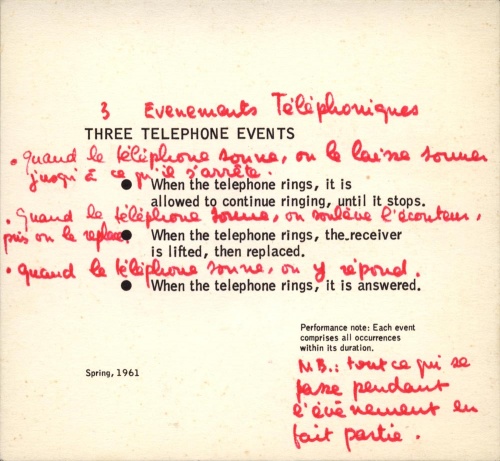 3 Evenements Téléphoniques
THREE TELEPHONE EVENTS
• Quand le téléphone sonne, on le laisse sonner
jusqu'à ce qu'il s'arrête.
● When the telephone rings, it is
allowed to continue ringing, until it stops.
• Quand le téléphone sonne, on soulève l'écouteur,
puis on le replace.
● When the telephone rings, the receiver
is lifted, then replaced.
• Quand le téléphone sonne, on y répond.
● When the telephone rings, it is answered.
Performance note: Each event
comprises all occurrences
within its duration.
Spring, 1961
N.B.: tout ce qui se
passe pendant
l'évènement en
fait partie.